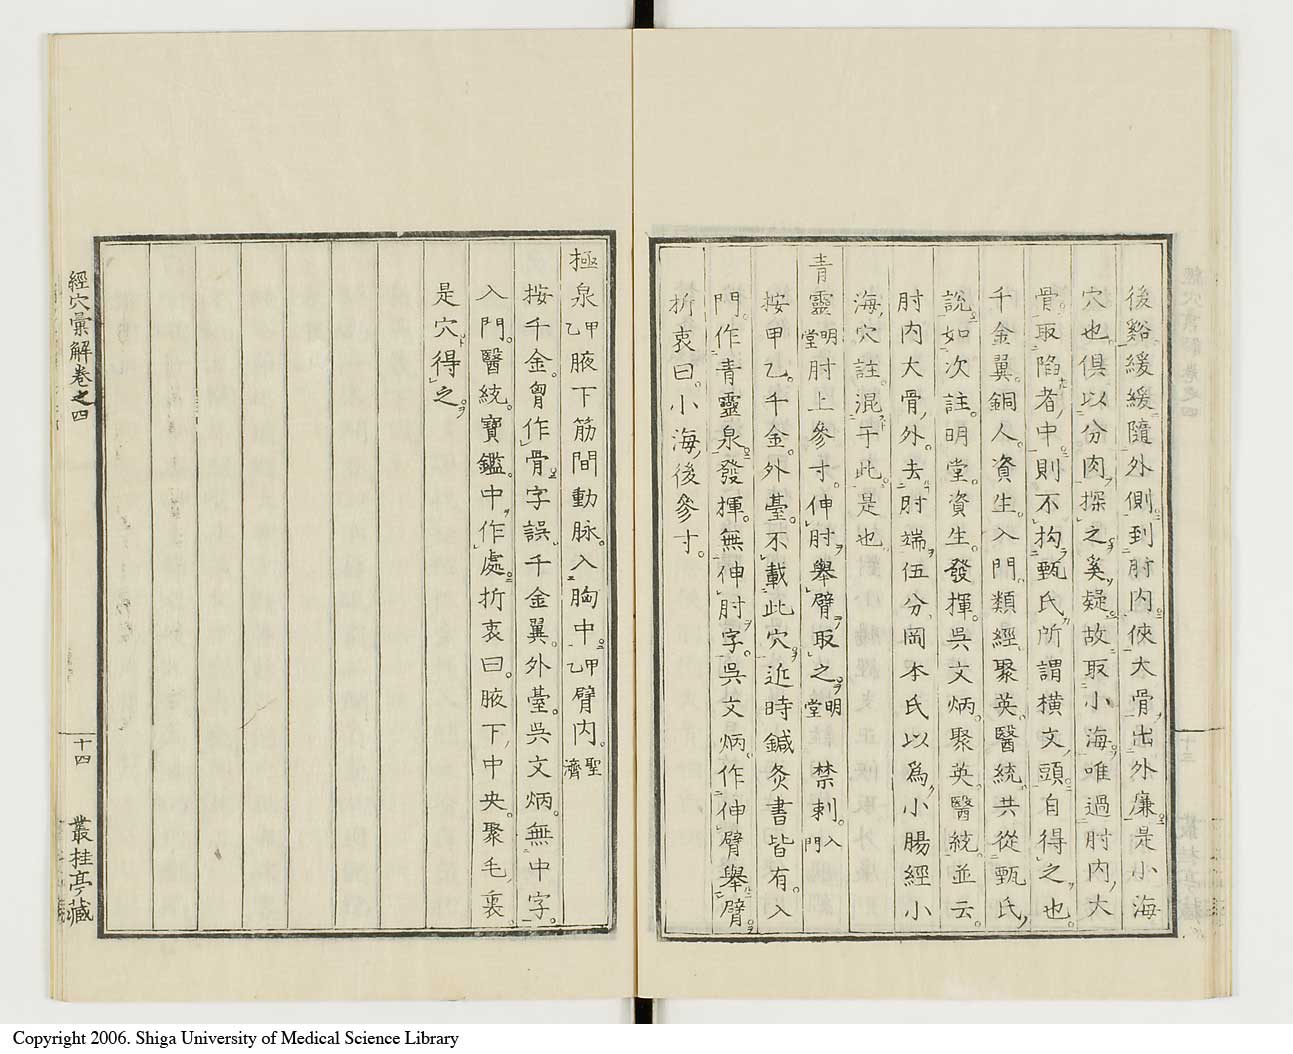 後谿緩緩隨外側到肘内俠大骨出外廉是小海
穴也俱以分肉探之奚疑故取小海唯過肘内大
骨取陷者中則不拘甄氏所謂橫文頭自得之也
千金翼銅人資生入門類經聚英醫統共從甄氏
說如次註明堂資生發揮吳文炳聚英醫統並云
肘内大骨外去肘端伍分岡本氏以爲小腸經小
海穴註混于此是也
青靈明堂肘上參寸伸肘舉臂取之明堂禁刺入門
按甲乙千金外臺不載此穴近時鍼灸書皆有入
門作青靈泉發揮無伸肘字吳文炳作伸臂舉臂
折衷曰小海後參寸
極泉甲乙腋下筋間動脉入胸中甲乙臂内聖濟
按千金胷作骨字誤千金翼外臺吳文炳無中字
入門醫統寶鑑中作處折衷曰腋下中央聚毛裏
是穴得之
經穴彙解卷之四
十四
叢桂亭藏
Copyright 2006. Shiga University of Medical Science Library